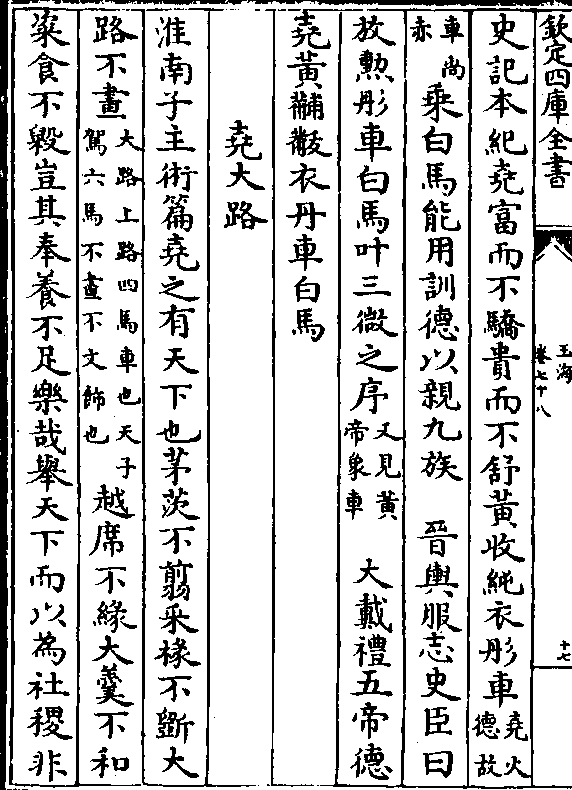 欽定四庫全書
玉海
卷七十八
十七
史記本紀堯富而不驕貴而不舒黄收純衣彤車堯火德故
車尚赤乘白馬能用訓德以親九族 晉輿服志史臣曰
放勲彤車白馬叶三微之序又見黄帝象車 大戴禮五帝德
堯黄黼黻衣丹車白馬
堯大路
淮南子主術篇堯之有天下也茅茨不翦采椽不斵大
路不畫大路上路四馬車也天子駕六馬不畫不文飾也越席不緣大羹不和
粢食不毇豈其奉養不足樂哉舉天下而以為社稷非